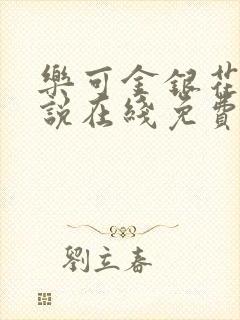 樂可金銀花
說在綫免費
劉立春